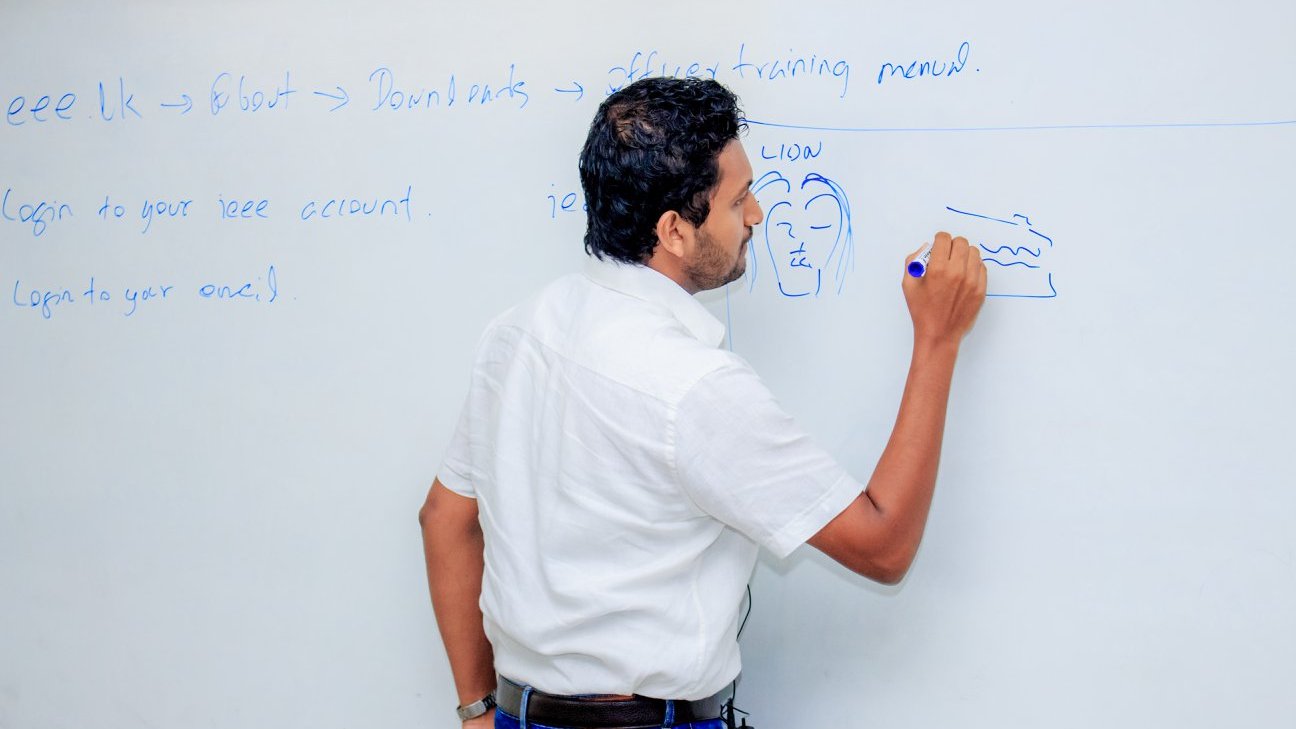 eee.lk → About → Downloads → officer training menual.
LION
Login to your ieee account. ie
Login to your email.